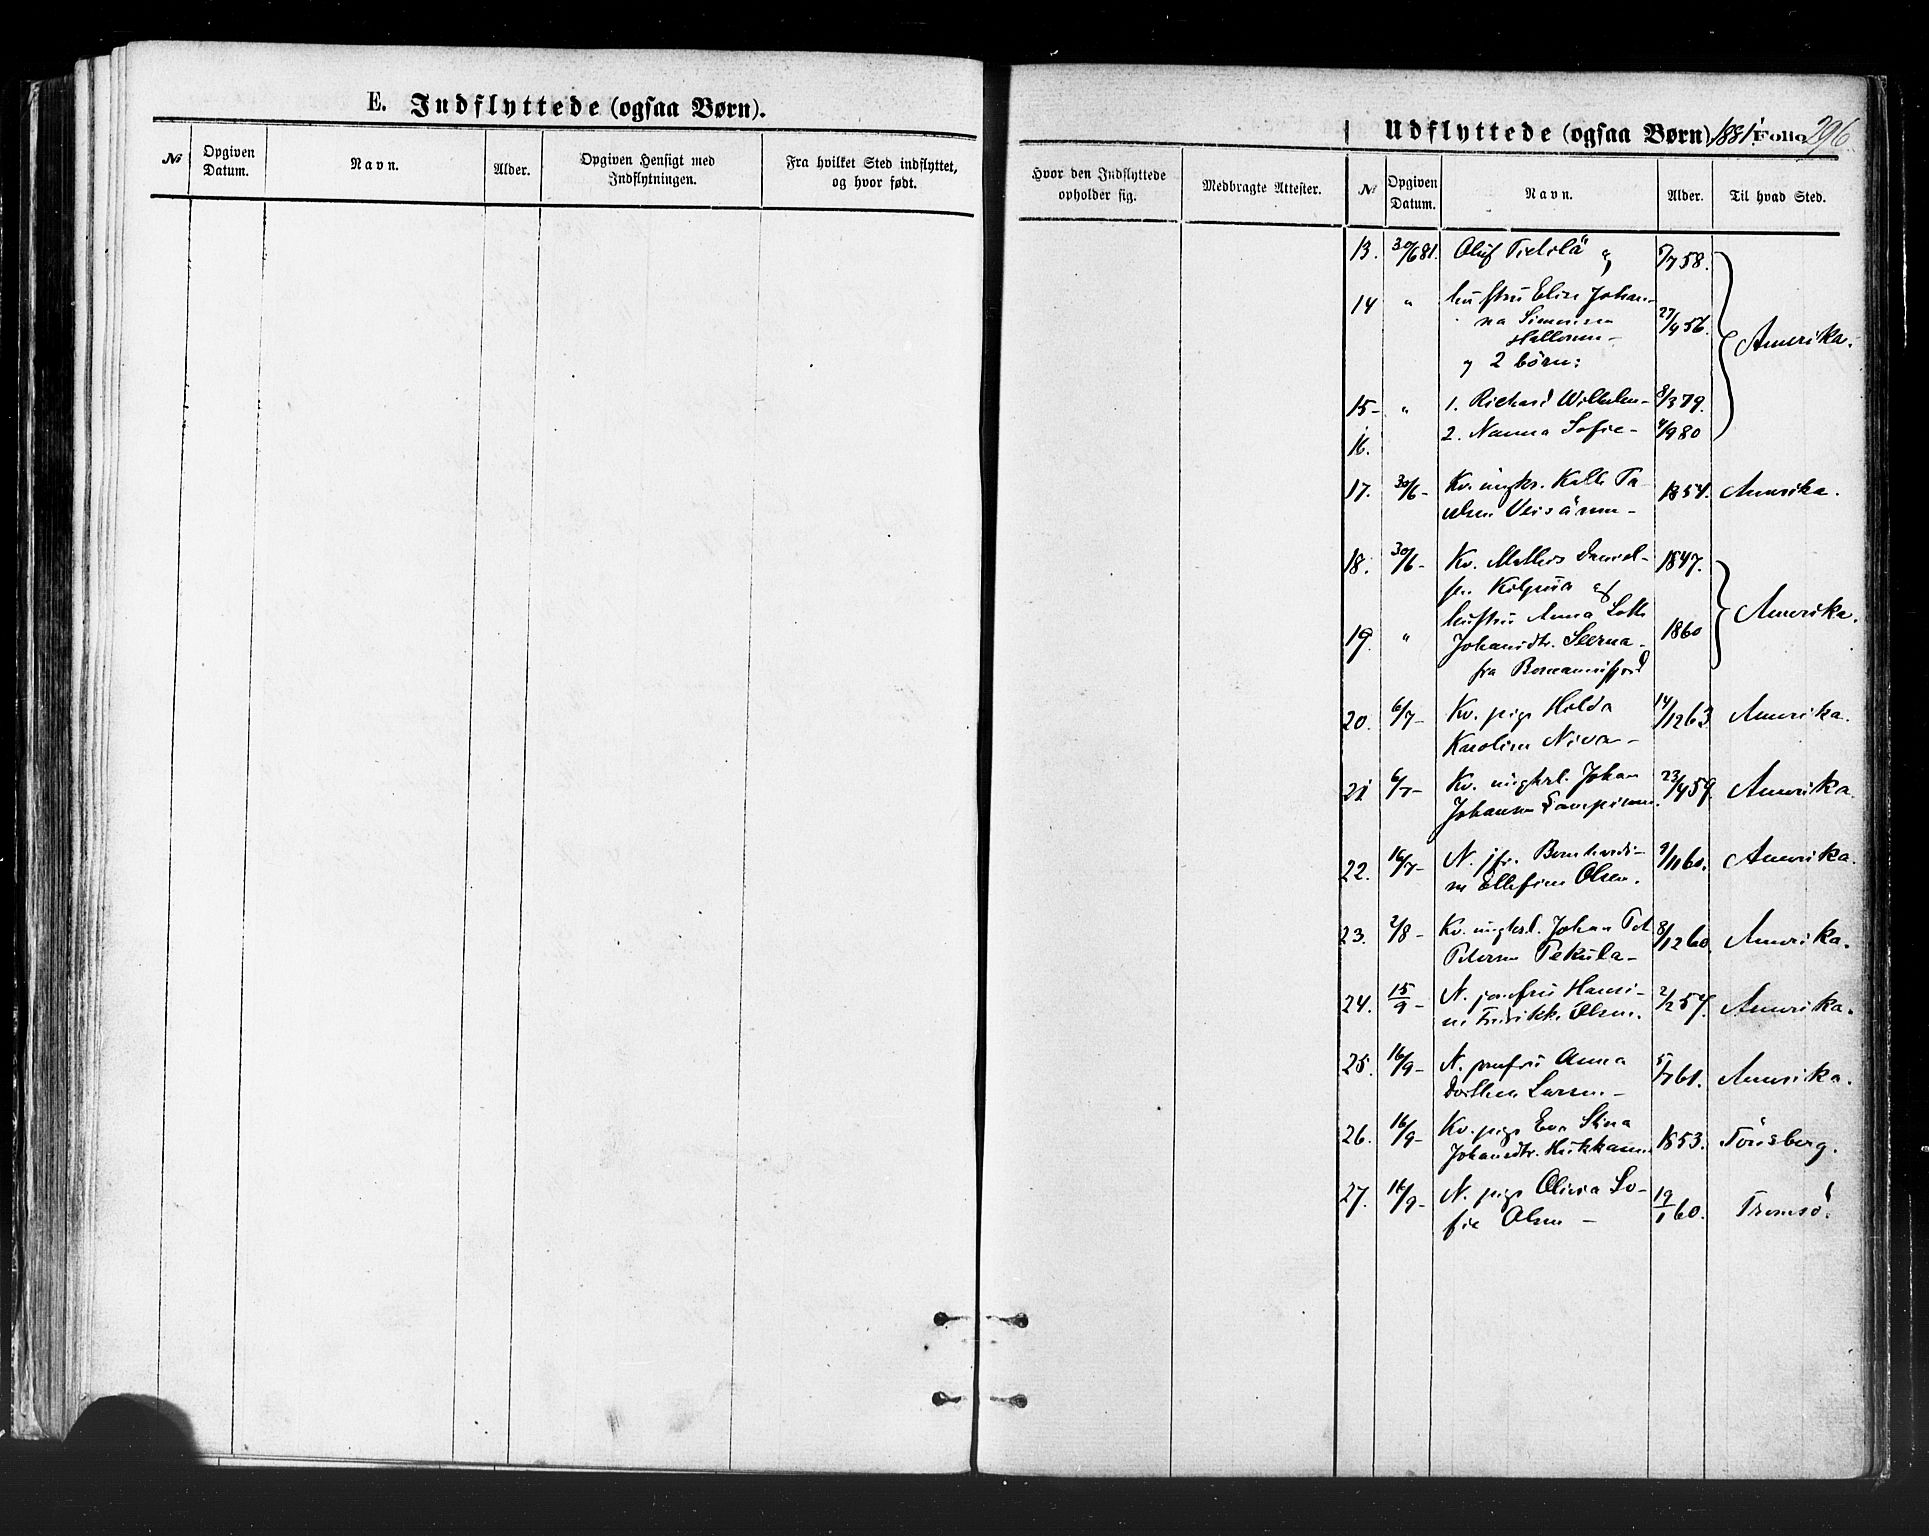 E. Indflyttede (ogsaa Børn).
№ Opgiven Datum. Navn. Alder. Opgiven Hensigt med Indflytningen. Fra hvilket Sted indflyttet, og hvor født.
Udflyttede (ogsaa Børn) 1881. Folio 296
Hvor den Indflyttede opholder sig. Medbragte Attester. № Opgiven Datum. Navn. Alder. Til hvad Sted.
13. 30/6 81. Oluf 5/7 58.
14 " hustru Elise Johan-
na Simonsen 27/4 56. Amerika.
og 2 börn:
15- " 1. Richard Wilhelm- 8/3 79.
16. 2. Nanna Sofie- 4/9 80
17. 30/6- Kv. ungkr. Kalle 1854. Amerika.
18. 30/6- Kv. Mathis Daniel- 1847.
og
19. " hustru Anna Lotte Amerika.
Johansdtr. 1860
fra
20. 6/7- Kv. pige Hilda 14/12 63 Amerika.
Karoline Niva-
21 6/7- Kv. ungkrl. Johan 23/4 59. Amerika.
Johansen
22. 16/7- N. jfr. Bernhardi- 9/11 60. Amerika.
ne Ellefine Olsen.
23. 2/8- Kv. ungkrl. Johan Pet 8/12 60. Amerika.
Petersen Pekula-
24. 15/9- N. jomfru Hansi- 2/2 57. Amerika.
ne Fredrikke Olsen.
25. 16/9- N. jomfru Anna 5/7 61. Amerika.
Dorthea Larsen-
26. 16/9- Kv. pige Eva Stina
Johansdtr. 1853. Tönsberg.
27. 16/9- N. pige Olivia So- 19/1 60. Tromsö.
fie Olsen-